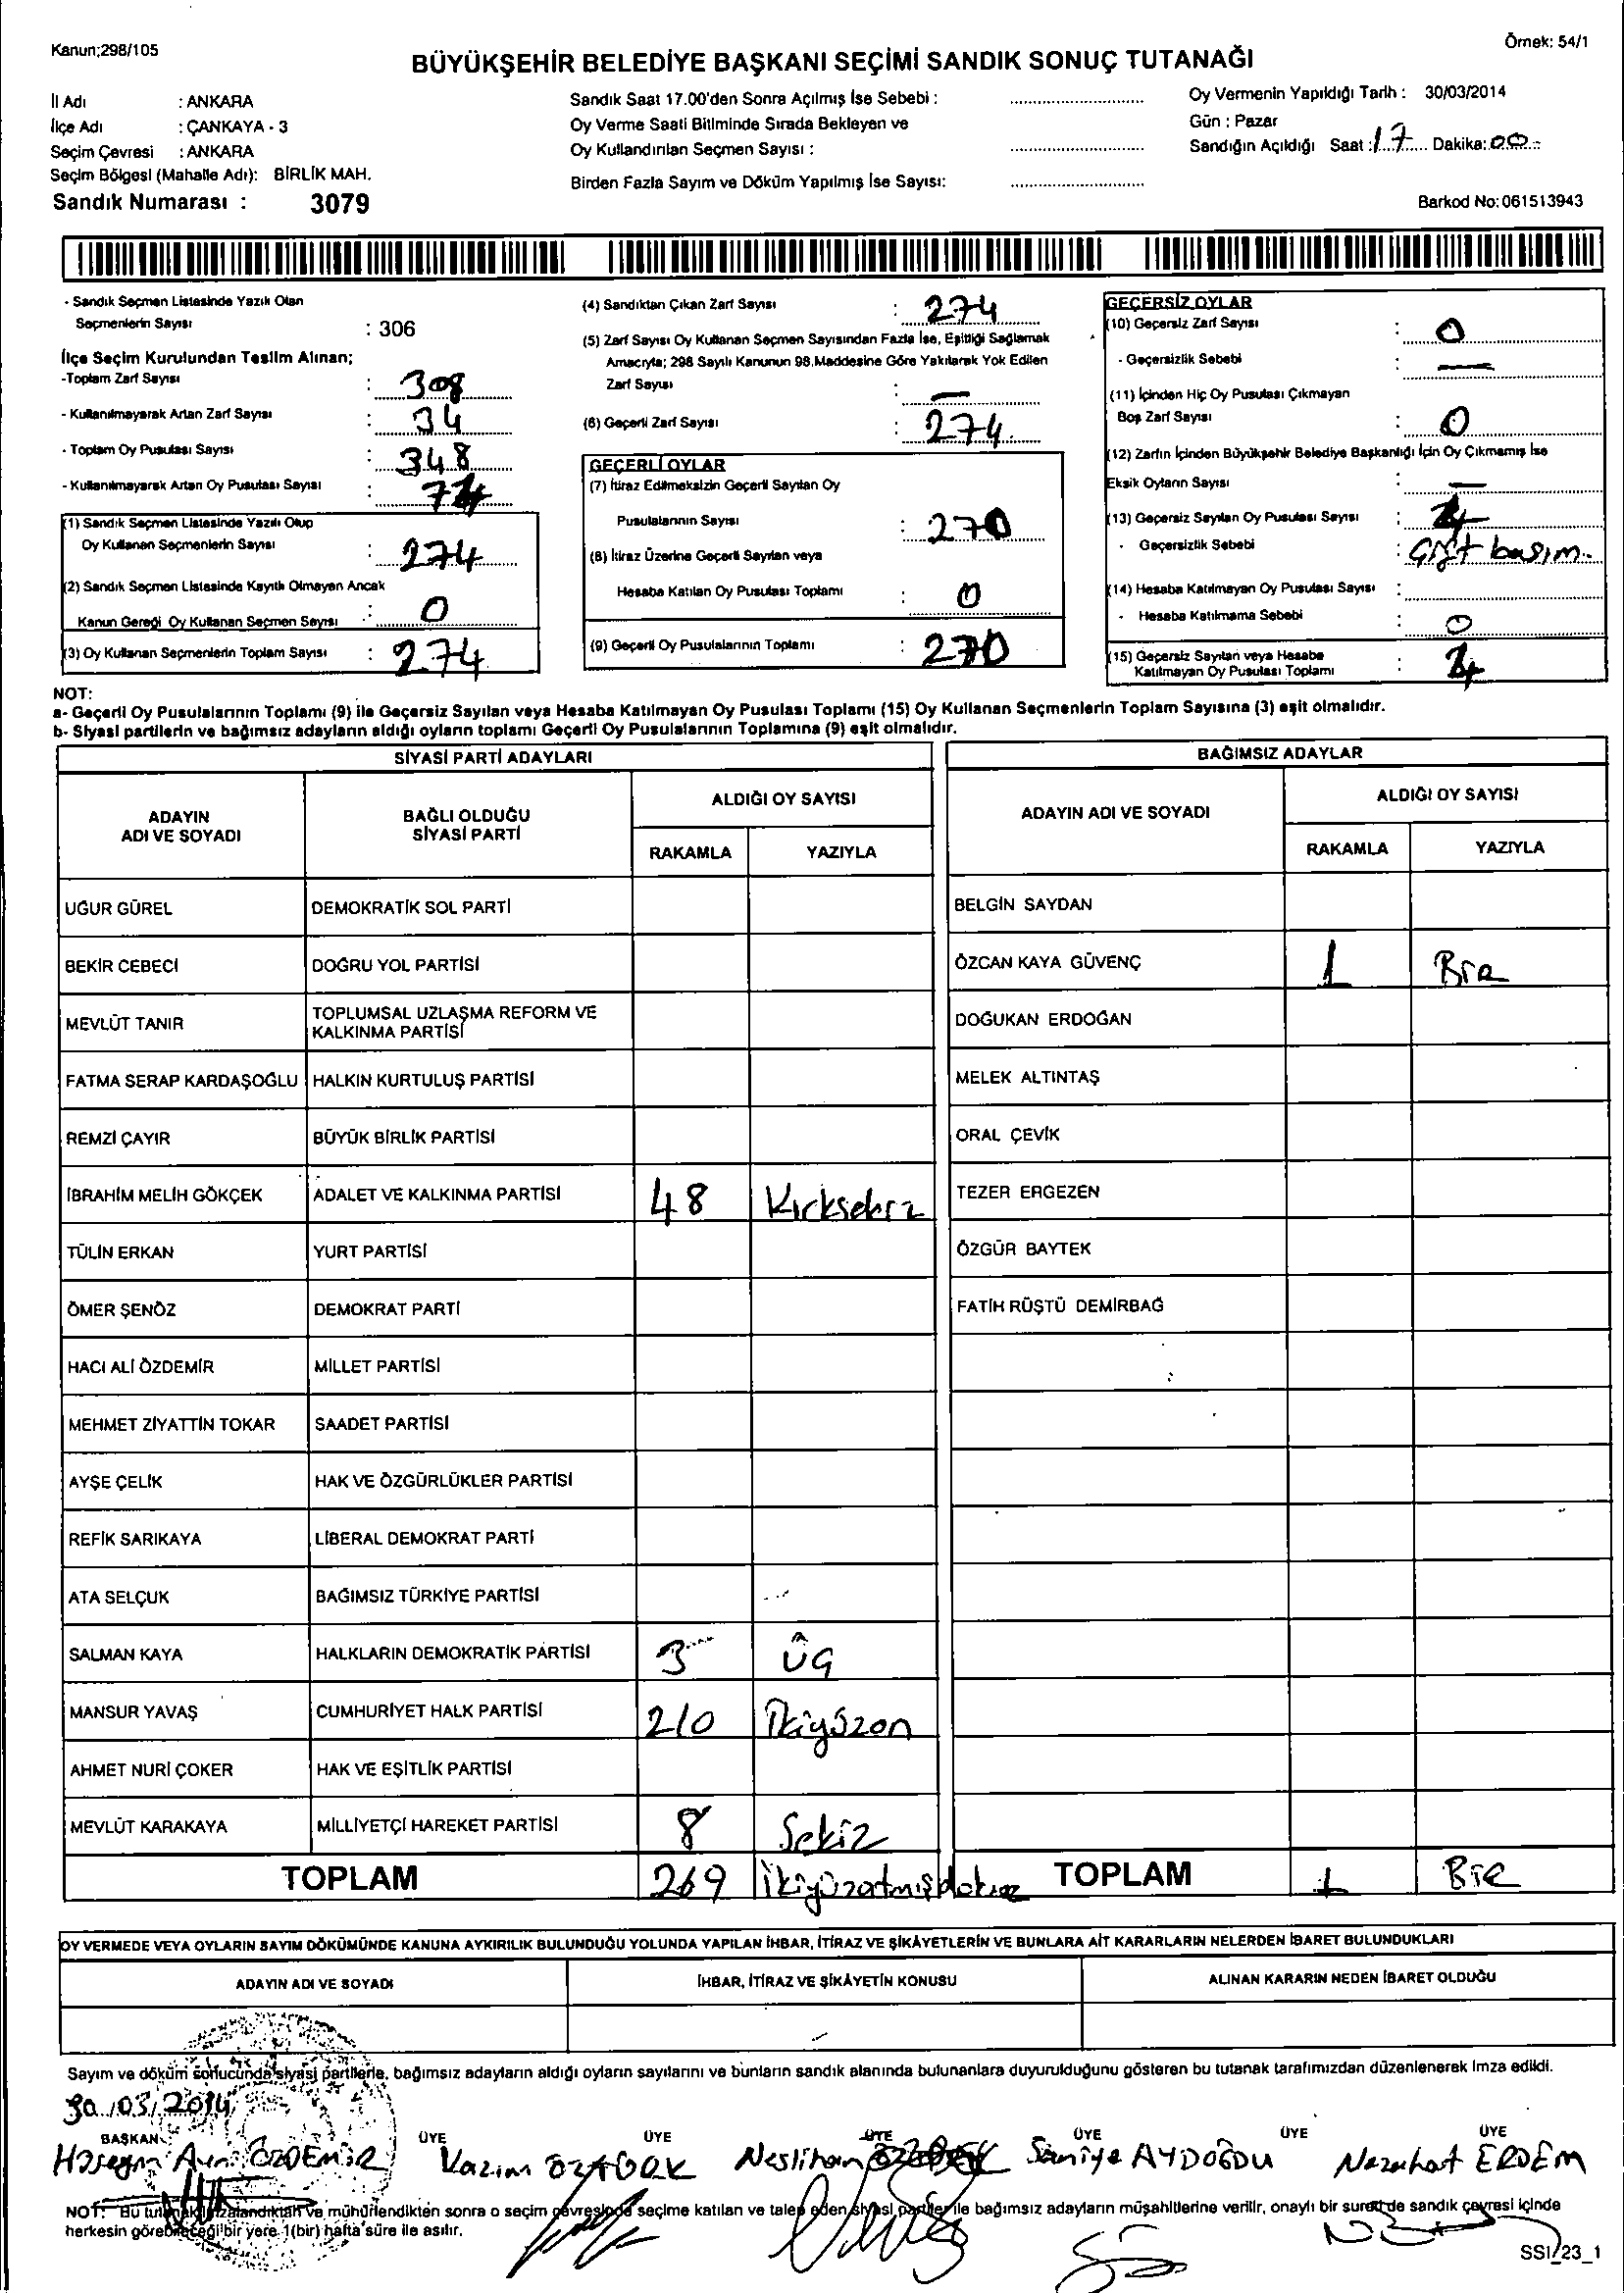 Kanun;298/105
Örnek: 54/1
BÜYÜKŞEHİR BELEDİYE BAŞKANI SEÇİMİ SANDIK SONUÇ TUTANAĞI
İl Adı : ANKARA
İlçe Adı : ÇANKAYA - 3
Seçim Çevresi : ANKARA
Seçim Bölgesi (Mahalle Adı): BİRLİK MAH.
Sandık Numarası : 3079
Sandık Saat 17.00'den Sonra Açılmış İse Sebebi :
Oy Verme Saati Bitiminde Sırada Bekleyen ve
Oy Kullandırılan Seçmen Sayısı :
Birden Fazla Sayım ve Döküm Yapılmış İse Sayısı:
Oy Vermenin Yapıldığı Tarih : 30/03/2014
Gün : Pazar
Sandığın Açıldığı Saat : 17 Dakika: 00
Barkod No: 061513943
- Sandık Seçmen Listesinde Yazılı Olan
Seçmenlerin Sayısı : 306
İlçe Seçim Kurulundan Teslim Alınan;
-Toplam Zarf Sayısı : 308
- Kullanılmayarak Artan Zarf Sayısı : 34
- Toplam Oy Pusulası Sayısı : 348
- Kullanılmayarak Artan Oy Pusulası Sayısı : 74
(1) Sandık Seçmen Listesinde Yazılı Olup
Oy Kullanan Seçmenlerin Sayısı : 274
(2) Sandık Seçmen Listesinde Kayıtlı Olmayan Ancak
Kanun Gereği Oy Kullanan Seçmen Sayısı : 0
(3) Oy Kullanan Seçmenlerin Toplam Sayısı : 274
(4) Sandıktan Çıkan Zarf Sayısı : 274
(5) Zarf Sayısı Oy Kullanan Seçmen Sayısından Fazla İse, Eşitliği Sağlamak
Amacıyla; 298 Sayılı Kanunun 98.Maddesine Göre Yakılarak Yok Edilen
Zarf Sayısı : —
(6) Geçerli Zarf Sayısı : 274
GEÇERLİ OYLAR
(7) İtiraz Edilmeksizin Geçerli Sayılan Oy
Pusulalarının Sayısı : 270
(8) İtiraz Üzerine Geçerli Sayılan veya
Hesaba Katılan Oy Pusulası Toplamı : 0
(9) Geçerli Oy Pusulalarının Toplamı : 270
GEÇERSİZ OYLAR
(10) Geçersiz Zarf Sayısı : 0
- Geçersizlik Sebebi : —
(11) İçinden Hiç Oy Pusulası Çıkmayan
Boş Zarf Sayısı : 0
(12) Zarfın İçinden Büyükşehir Belediye Başkanlığı İçin Oy Çıkmamış İse
Eksik Oyların Sayısı : —
(13) Geçersiz Sayılan Oy Pusulası Sayısı : 4
- Geçersizlik Sebebi : Çift basım.
(14) Hesaba Katılmayan Oy Pusulası Sayısı :
- Hesaba Katılmama Sebebi : 0
(15) Geçersiz Sayılan veya Hesaba
Katılmayan Oy Pusulası Toplamı : 4
NOT:
a- Geçerli Oy Pusulalarının Toplamı (9) ile Geçersiz Sayılan veya Hesaba Katılmayan Oy Pusulası Toplamı (15) Oy Kullanan Seçmenlerin Toplam Sayısına (3) eşit olmalıdır.
b- Siyasi partilerin ve bağımsız adayların aldığı oyların toplamı Geçerli Oy Pusulalarının Toplamına (9) eşit olmalıdır.
SİYASİ PARTİ ADAYLARI
ADAYIN ADI VE SOYADI BAĞLI OLDUĞU SİYASİ PARTİ ALDIĞI OY SAYISI
RAKAMLA YAZIYLA
UĞUR GÜREL DEMOKRATİK SOL PARTİ
BEKİR CEBECİ DOĞRU YOL PARTİSİ
MEVLÜT TANIR TOPLUMSAL UZLAŞMA REFORM VE KALKINMA PARTİSİ
FATMA SERAP KARDAŞOĞLU HALKIN KURTULUŞ PARTİSİ
REMZİ ÇAYIR BÜYÜK BİRLİK PARTİSİ
İBRAHİM MELİH GÖKÇEK ADALET VE KALKINMA PARTİSİ 48 Kırksekiz
TÜLİN ERKAN YURT PARTİSİ
ÖMER ŞENÖZ DEMOKRAT PARTİ
HACI ALİ ÖZDEMİR MİLLET PARTİSİ
MEHMET ZİYATTİN TOKAR SAADET PARTİSİ
AYŞE ÇELİK HAK VE ÖZGÜRLÜKLER PARTİSİ
REFİK SARIKAYA LİBERAL DEMOKRAT PARTİ
ATA SELÇUK BAĞIMSIZ TÜRKİYE PARTİSİ
SALMAN KAYA HALKLARIN DEMOKRATİK PARTİSİ 3 Üç
MANSUR YAVAŞ CUMHURİYET HALK PARTİSİ 210 İkiyüzon
AHMET NURİ ÇOKER HAK VE EŞİTLİK PARTİSİ
MEVLÜT KARAKAYA MİLLİYETÇİ HAREKET PARTİSİ 8 Sekiz
TOPLAM 269 İkiyüzatmışdokuz
BAĞIMSIZ ADAYLAR
ADAYIN ADI VE SOYADI ALDIĞI OY SAYISI
RAKAMLA YAZIYLA
BELGİN SAYDAN
ÖZCAN KAYA GÜVENÇ 1 Bir
DOĞUKAN ERDOĞAN
MELEK ALTINTAŞ
ORAL ÇEVİK
TEZER ERGEZEN
ÖZGÜR BAYTEK
FATİH RÜŞTÜ DEMİRBAĞ
TOPLAM 1 Bir
OY VERMEDE VEYA OYLARIN SAYIM DÖKÜMÜNDE KANUNA AYKIRILIK BULUNDUĞU YOLUNDA YAPILAN İHBAR, İTİRAZ VE ŞİKÂYETLERİN VE BUNLARA AİT KARARLARIN NELERDEN İBARET BULUNDUKLARI
ADAYIN ADI VE SOYADI İHBAR, İTİRAZ VE ŞİKÂYETİN KONUSU ALINAN KARARIN NEDEN İBARET OLDUĞU
Sayım ve döküm sonucunda siyasi partilerle, bağımsız adayların aldığı oyların sayılarını ve bunların sandık alanında bulunanlara duyurulduğunu gösteren bu tutanak tarafımızdan düzenlenerek imza edildi.
30/03/2014
BAŞKAN ÜYE ÜYE ÜYE ÜYE ÜYE ÜYE
Hüseyin Avni ÖZDEMİR Kazım ÖZTÜRK Neslihan Saniye AYDOĞDU Nezahat ERDEM
NOT: Bu tutanak imzalandıktan ve mühürlendikten sonra o seçim çevresinde seçime katılan ve talep eden siyasi partiler ile bağımsız adayların müşahitlerine verilir, onaylı bir sureti de sandık çevresi içinde
herkesin görebileceği bir yere 1(bir) hafta süre ile asılır.
SSI_23_1